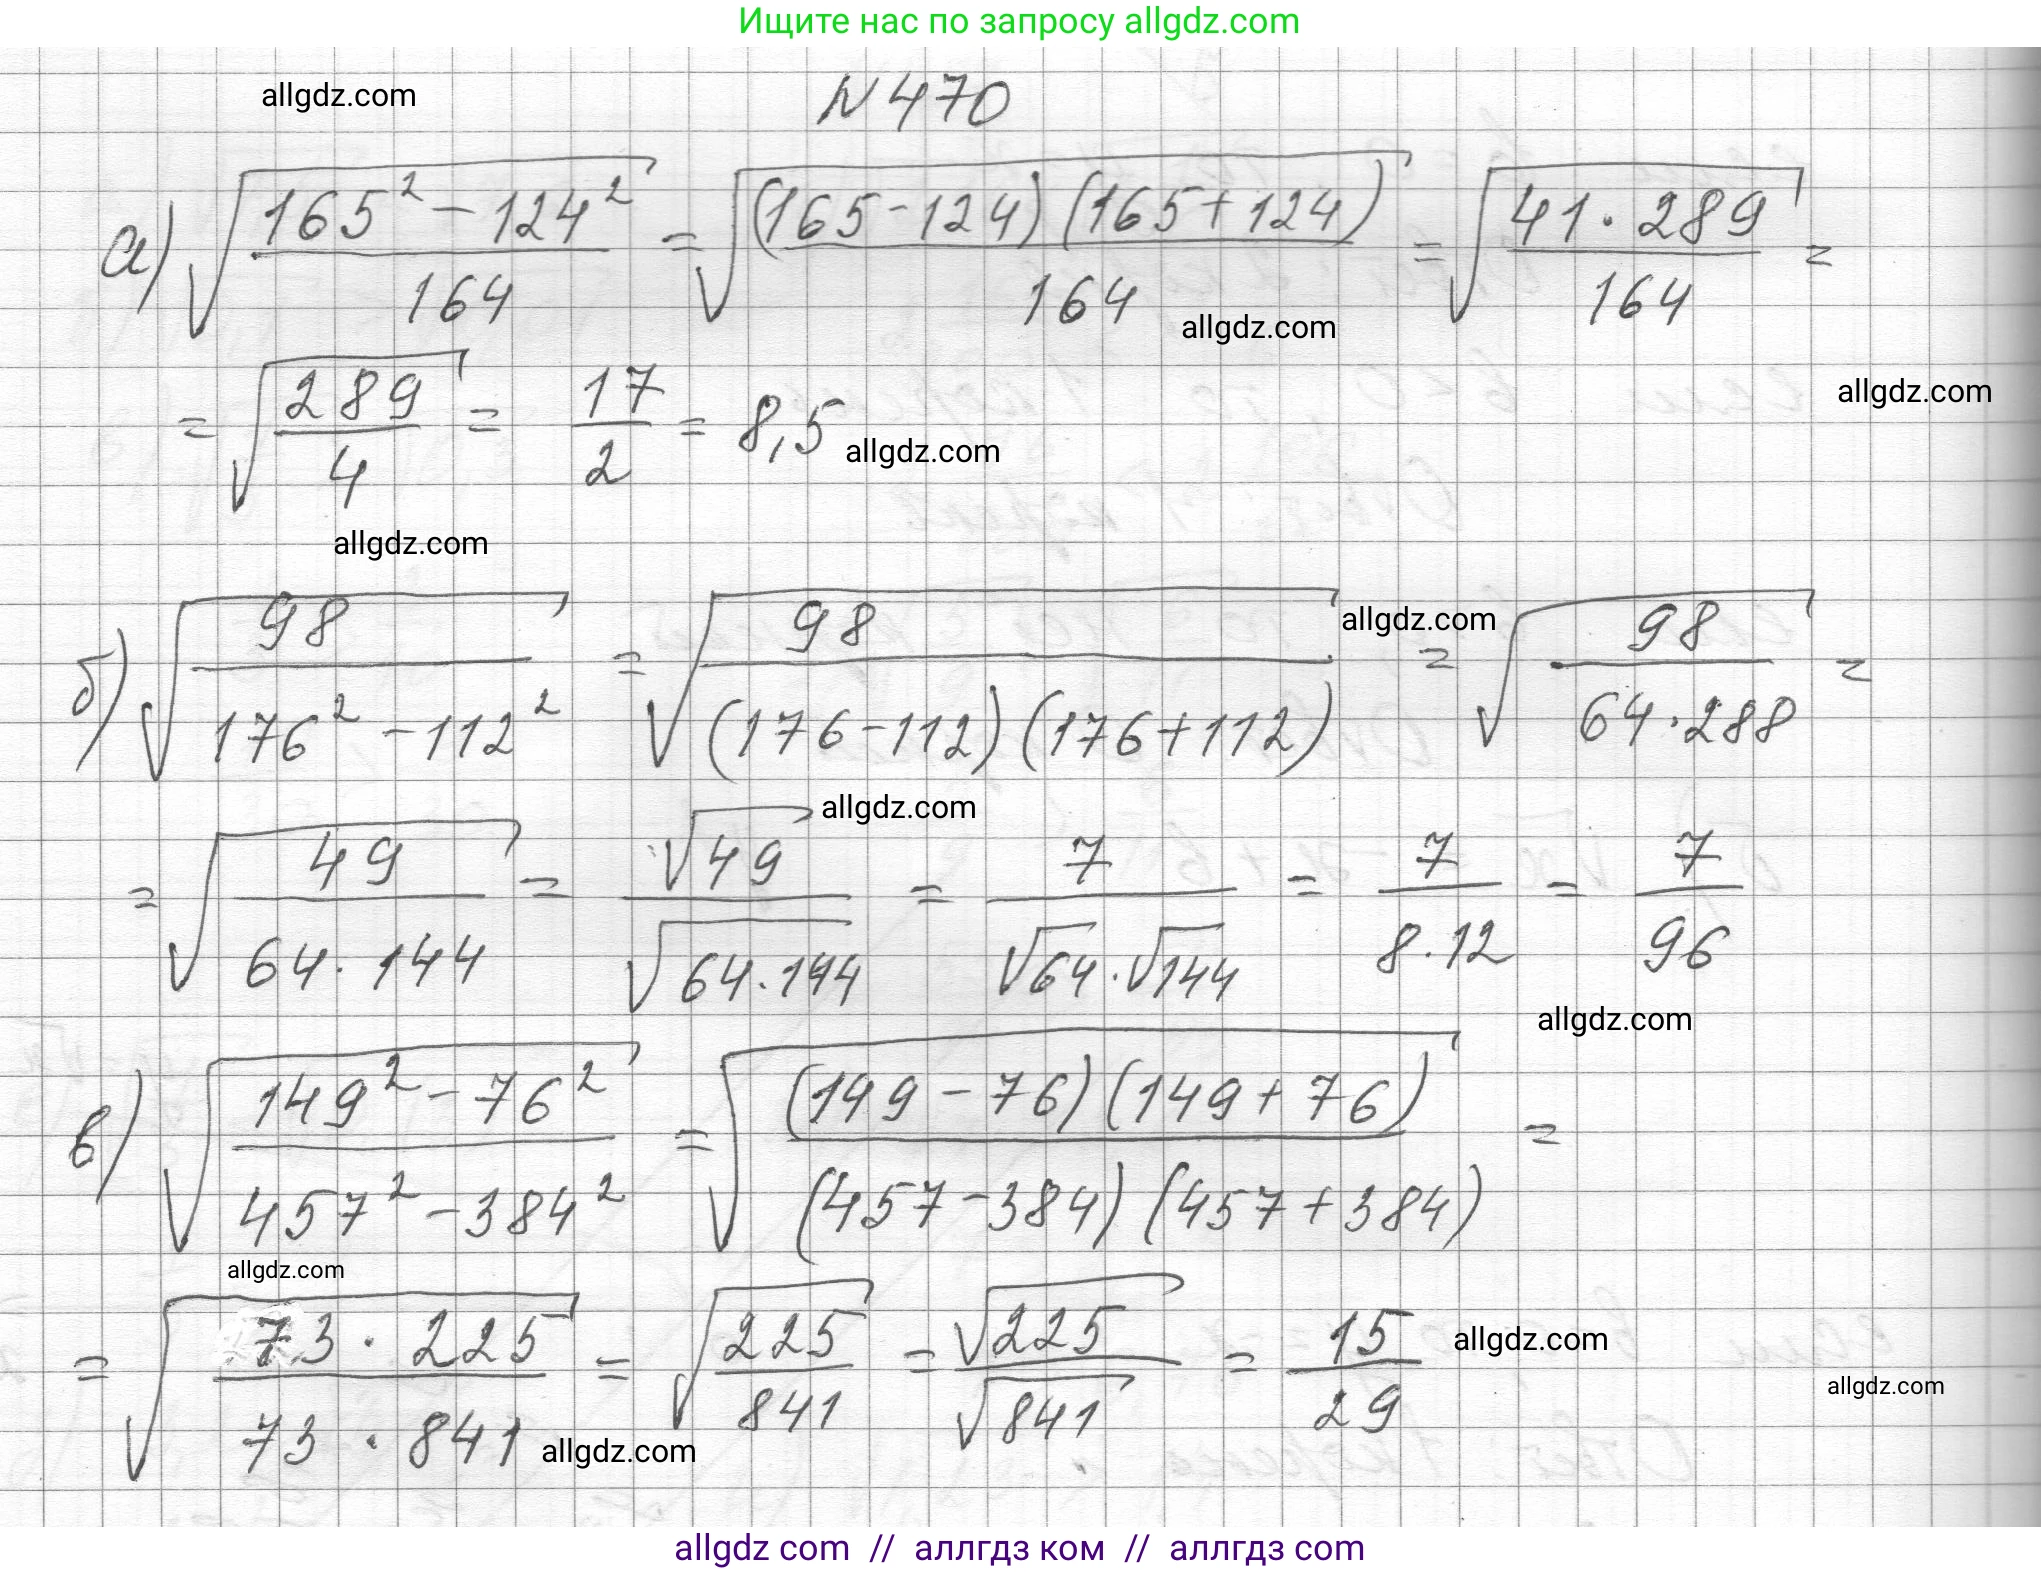 Ищите нас по запросу allgdz.com
allgdz.com
N 470
а) √((165² − 124²)/164) = √((165-124)(165+124)/164) = √((41 · 289)/164) =
allgdz.com
allgdz.com
= √(289/4) = 17/2 = 8,5 allgdz.com
allgdz.com
б) √(98/(176² − 112²)) = √(98/((176-112)(176+112))) allgdz.com = √(98/(64·288)) =
allgdz.com
= √(49/(64·144)) = √49/√(64·144) = 7/(√64·√144) = 7/(8·12) = 7/96
allgdz.com
в) √((149² − 76²)/(457² − 384²)) = √((149−76)(149+76)/((457−384)(457+384))) =
allgdz.com
= √((73 · 225)/(73 · 841)) = √(225/841) = √225/√841 = 15/29 allgdz.com
allgdz.com
allgdz.com
allgdz com // аллгдз ком // аллгдз com